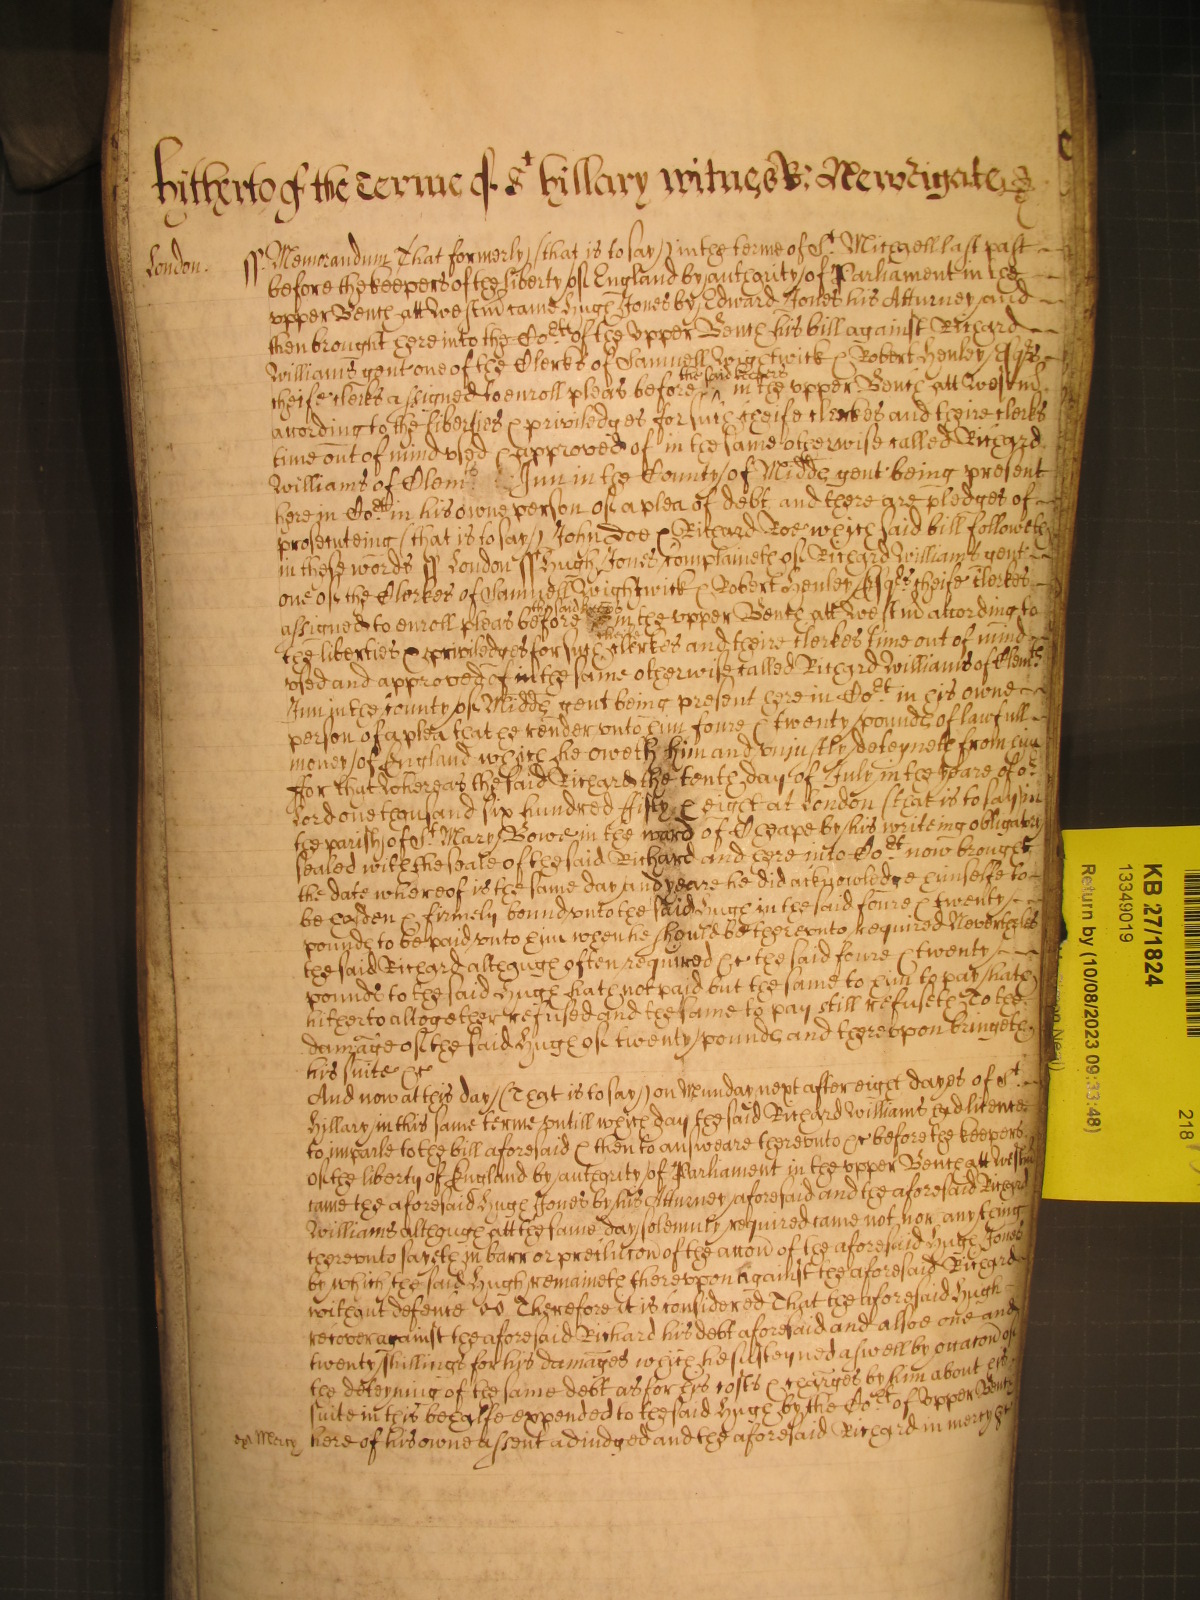 hitherto of the Terme of St hillary witness R: Newdigate
London. ss. Memorandum That formerly (that is to say) in the terme of St. Michaell last past
before the keepers of the liberty of England by authority of Parliament in the
upper Bench att Westm came Hugh Jones by Edward Jones his Atturney and
then brought here into the Cort of the upper Bench his bill against Richard
Williams gent one of the Clerks of Samuell Wightwick & Robert Henley Esqrs
cheife clerks assigned to enroll pleas before the said keepers in the upper Bench att Westm
according to the liberties & priviledges for such cheife clerkes and theire clerks
time out of mind vsed & approved of in the same otherwise called Richard
Williams of Clemts Inn in the County of Middx gent being present
here in Cort in his owne person of a plea of debt and there are pledges of
prosecuteing (that is to say) John Doe & Richard Roe which said bill followeth
in these words ss London ss Hugh Jones complaineth of Richard Williams gent
one of the Clerkes of Samuell Wightwick & Robert Henley Esqrs cheife Clerkes
assigned to enroll pleas before the said keepers in the upper Bench att Westm according to
the liberties & priviledges for such cheife clerkes and theire clerkes time out of mind
vsed and approved of in the same otherwise called Richard Williams of Clemts
Inn in the County of Middx gent being present here in Cort in his owne
person of a plea that he render vnto him foure & twenty pounds of lawfull
money of England which he oweth him and vniustly deteyneth from him
For that whereas the said Richard the tenth day of July in the yeare of or
Lord one thousand six hundred fifty & eight at London (that is to say) in
the parish of St Mary Bowe in the ward of Cheape by his writeing obligatory
sealed with the seale of the said Richard and here into Cort now brought
the date whereof is the same day and yeare he did acknowledge himselfe to
be holden & firmely bound vnto the said Hugh in the said foure & twenty
pounds to be paid vnto him when he should be therevnto required Neverthelesse
the said Richard although often required &c the said foure & twenty
pounds to the said Hugh hath not paid but the same to him to pay hath
hitherto altogether refused and the same to pay still refuseth To the
damage of the said Hugh of twenty pounds and therevpon bringeth
his suite &c
And now at this day (That is to say) on Munday next after eight dayes of St.
Hillary in this same terme vntill which day the said Richard Williams had licence
to imparle to the bill aforesaid & then to answeare therevnto &c before the keepers
of the liberty of England by authority of Parliament in the vpper Bench att Westm
came the aforesaid Hugh Jones by his Atturney aforesaid and the aforesaid Richard
Williams although att the same day solemnly required came not nor any thing
therevnto sayeth in barr or preclucon of the accon of the aforesaid Hugh Jones
by which the said Hugh remaineth therevpon against the aforesaid Richard
without defence &c. Therefore it is considered That the aforesaid Hugh
recover against the aforesaid Richard his debt aforesaid and alsoe one and
twenty shillings for his damages which he susteyned aswell by occacon of
the deteyning of the same debt as for his costs & charges by him about his
suite in this behalfe expended to the said Hugh by the Cort of vpper Bench
in Mercy here of his owne assent adiudged and the aforesaid Richard in mercy &c
KB 27/1824
13349019
Return by (10/08/2023 09:33:48)
218